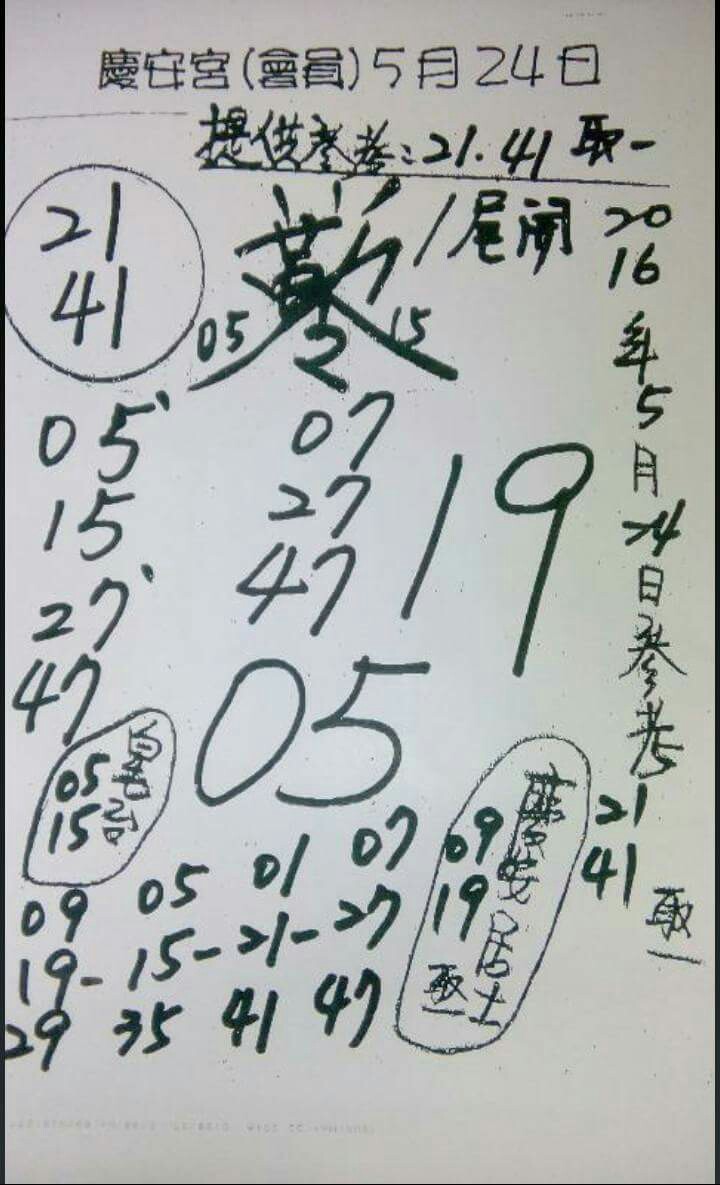 慶安宮(會員)5月24日
提供參考:21.41 取一
21
41
1尾開
05 15
05
15
27
47
07
27
47
19
05
05
15
09 05 01 07
19-15-21-27
29 35 41 47
慶安居士
09
19
取一
2016年5月24日參考
21
41
取一